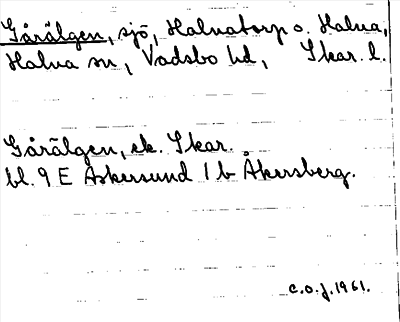 Gårälgen, sjö, Halnatorp o. Halna,
Halna sn, Vadsbo hd, Skar. l.
Gårälgen, ek. Skar.
bl. 9 E Askersund 1 b Åkersberg.
c.o.j. 1961.